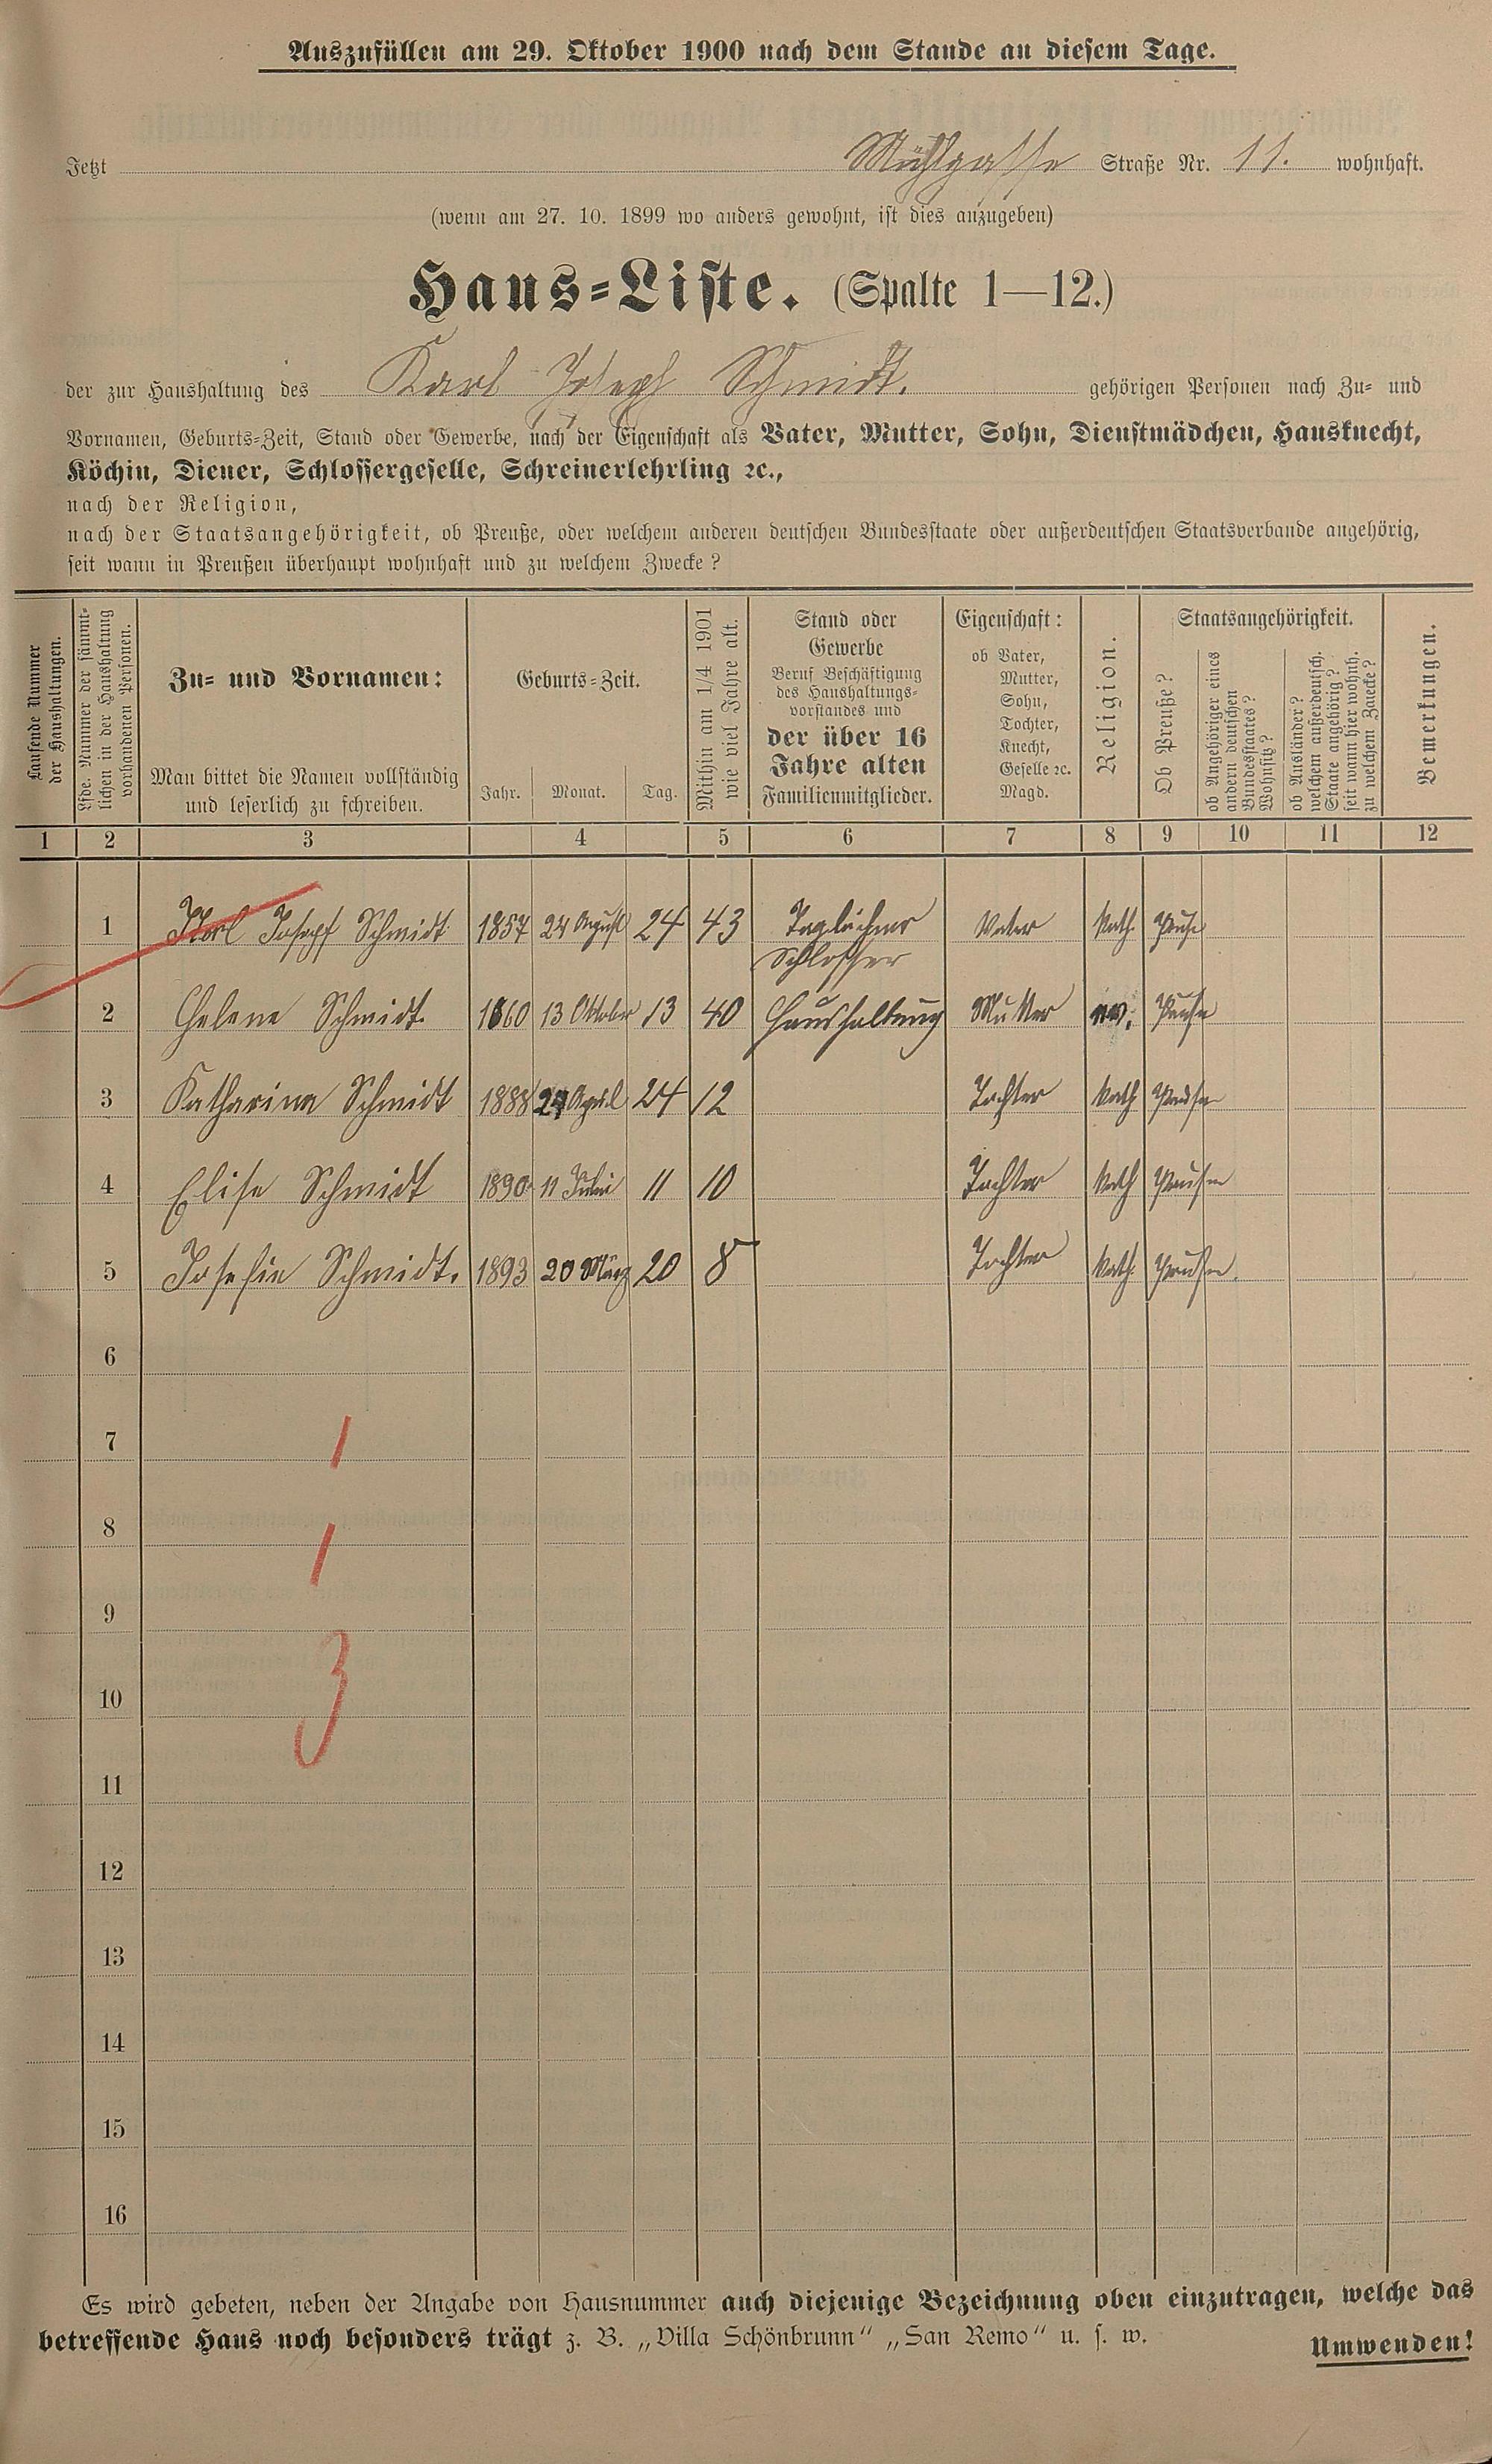 Auszufüllen am 29. Oktober 1900 nach dem Stande an diesem Tage.
Jetzt Mühlgasse Straße Nr. 11. wohnhaft.
(wenn am 27. 10. 1899 wo anders gewohnt, ist dies anzugeben)
Haus-Liste. (Spalte 1—12.)
der zur Haushaltung des Karl Joseph Schmidt. gehörigen Personen nach Zu- und
Vornamen, Geburts-Zeit, Stand oder Gewerbe, nach der Eigenschaft als Vater, Mutter, Sohn, Dienstmädchen, Hausknecht,
Köchin, Diener, Schlossergeselle, Schreinerlehrling ꝛc.,
nach der Religion,
nach der Staatsangehörigkeit, ob Preuße, oder welchem anderen deutschen Bundesstaate oder außerdeutschen Staatsverbande angehörig,
seit wann in Preußen überhaupt wohnhaft und zu welchem Zwecke?
Laufende Nummer
der Haushaltungen.
Lfde. Nummer der sämmt-
lichen in der Haushaltung
vorhandenen Personen.
Zu- und Vornamen:
Man bittet die Namen vollständig
und leserlich zu schreiben.
Geburts-Zeit.
Jahr. Monat. Tag.
Mithin am 1/4 1901
wie viel Jahre alt.
Stand oder
Gewerbe
Beruf Beschäftigung
des Haushaltungs-
vorstandes und
der über 16
Jahre alten
Familienmitglieder.
Eigenschaft:
ob Vater,
Mutter,
Sohn,
Tochter,
Knecht,
Geselle ꝛc.
Magd.
Religion.
Staatsangehörigkeit.
Ob Preuße?
ob Angehöriger eines
andern deutschen
Bundesstaates?
Wohnsitz?
ob Ausländer?
welchem außerdeutsch.
Staate angehörig?
seit wann hier wohnh.
zu welchem Zwecke?
Bemerkungen.
1 2 3 4 5 6 7 8 9 10 11 12
1 Karl Josepf Schmidt 1857 24 August 24 43 Taglöhner Vater Kath. Preuße
Schlosser
2 Helene Schmidt 1860 13 Oktober 13 40 Haushaltung Mutter ev. Preuße
3 Katharina Schmidt 1888 24 April 24 12 Tochter Kath Preußen
4 Elise Schmidt 1890 11 Juli 11 10 Tochter Kath Preußen
5 Josefin Schmidt. 1893 20 März 20 8 Tochter Kath. Preußen.
6
7 1
8 1
9
10 3
11
12
13
14
15
16
Es wird gebeten, neben der Angabe von Hausnummer auch diejenige Bezeichnung oben einzutragen, welche das
betreffende Haus noch besonders trägt z. B. „Villa Schönbrunn“ „San Remo“ u. s. w.
Umwenden!